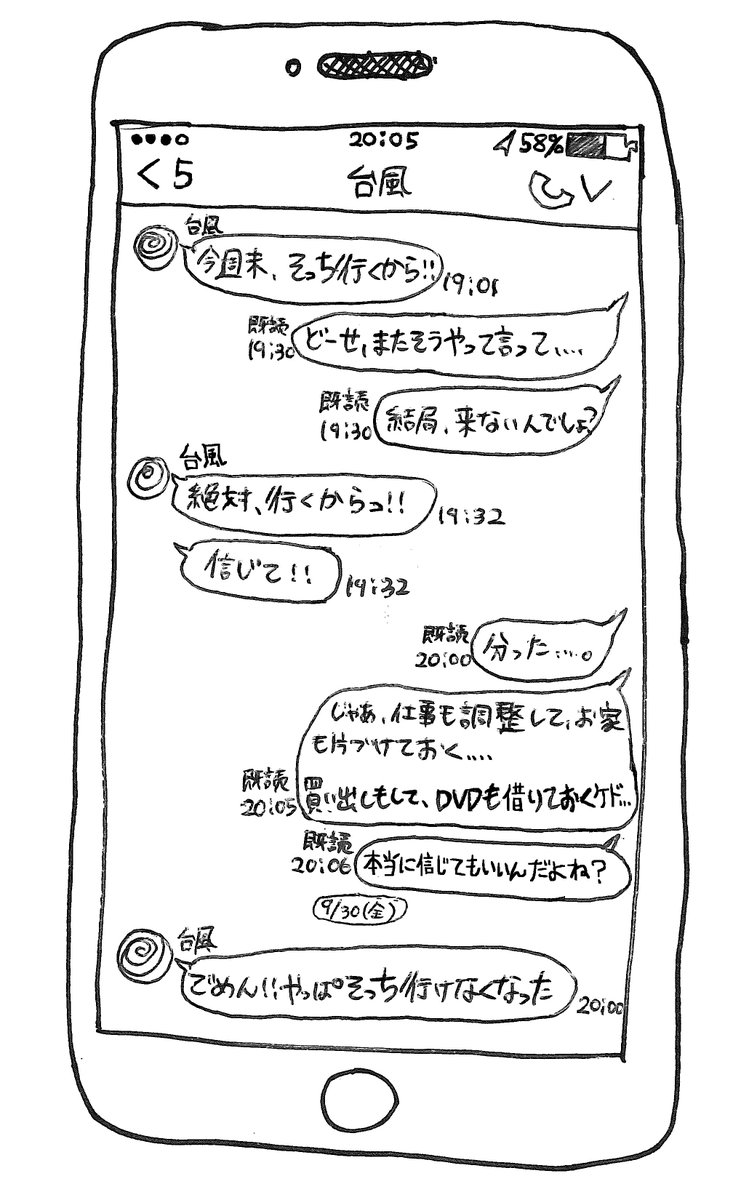 20:05
58%
<5
台風
台風
今週末、そっち行くから!!
19:01
既読
19:30
どーせ、またそうやって言って....
既読
19:30
結局、来ないんでしょ?
台風
絶対、行くからっ!!
19:32
信じて!!
19:32
既読
20:00
分った....。
じゃあ、仕事も調整して、お家
も片づけておく....
買い出しもして、DVDも借りておくケド...
既読
20:05
既読
20:06
本当に信じてもいいんだよね?
9/30(金)
台風
ごめん!!やっぱそっち行けなくなった
20:00